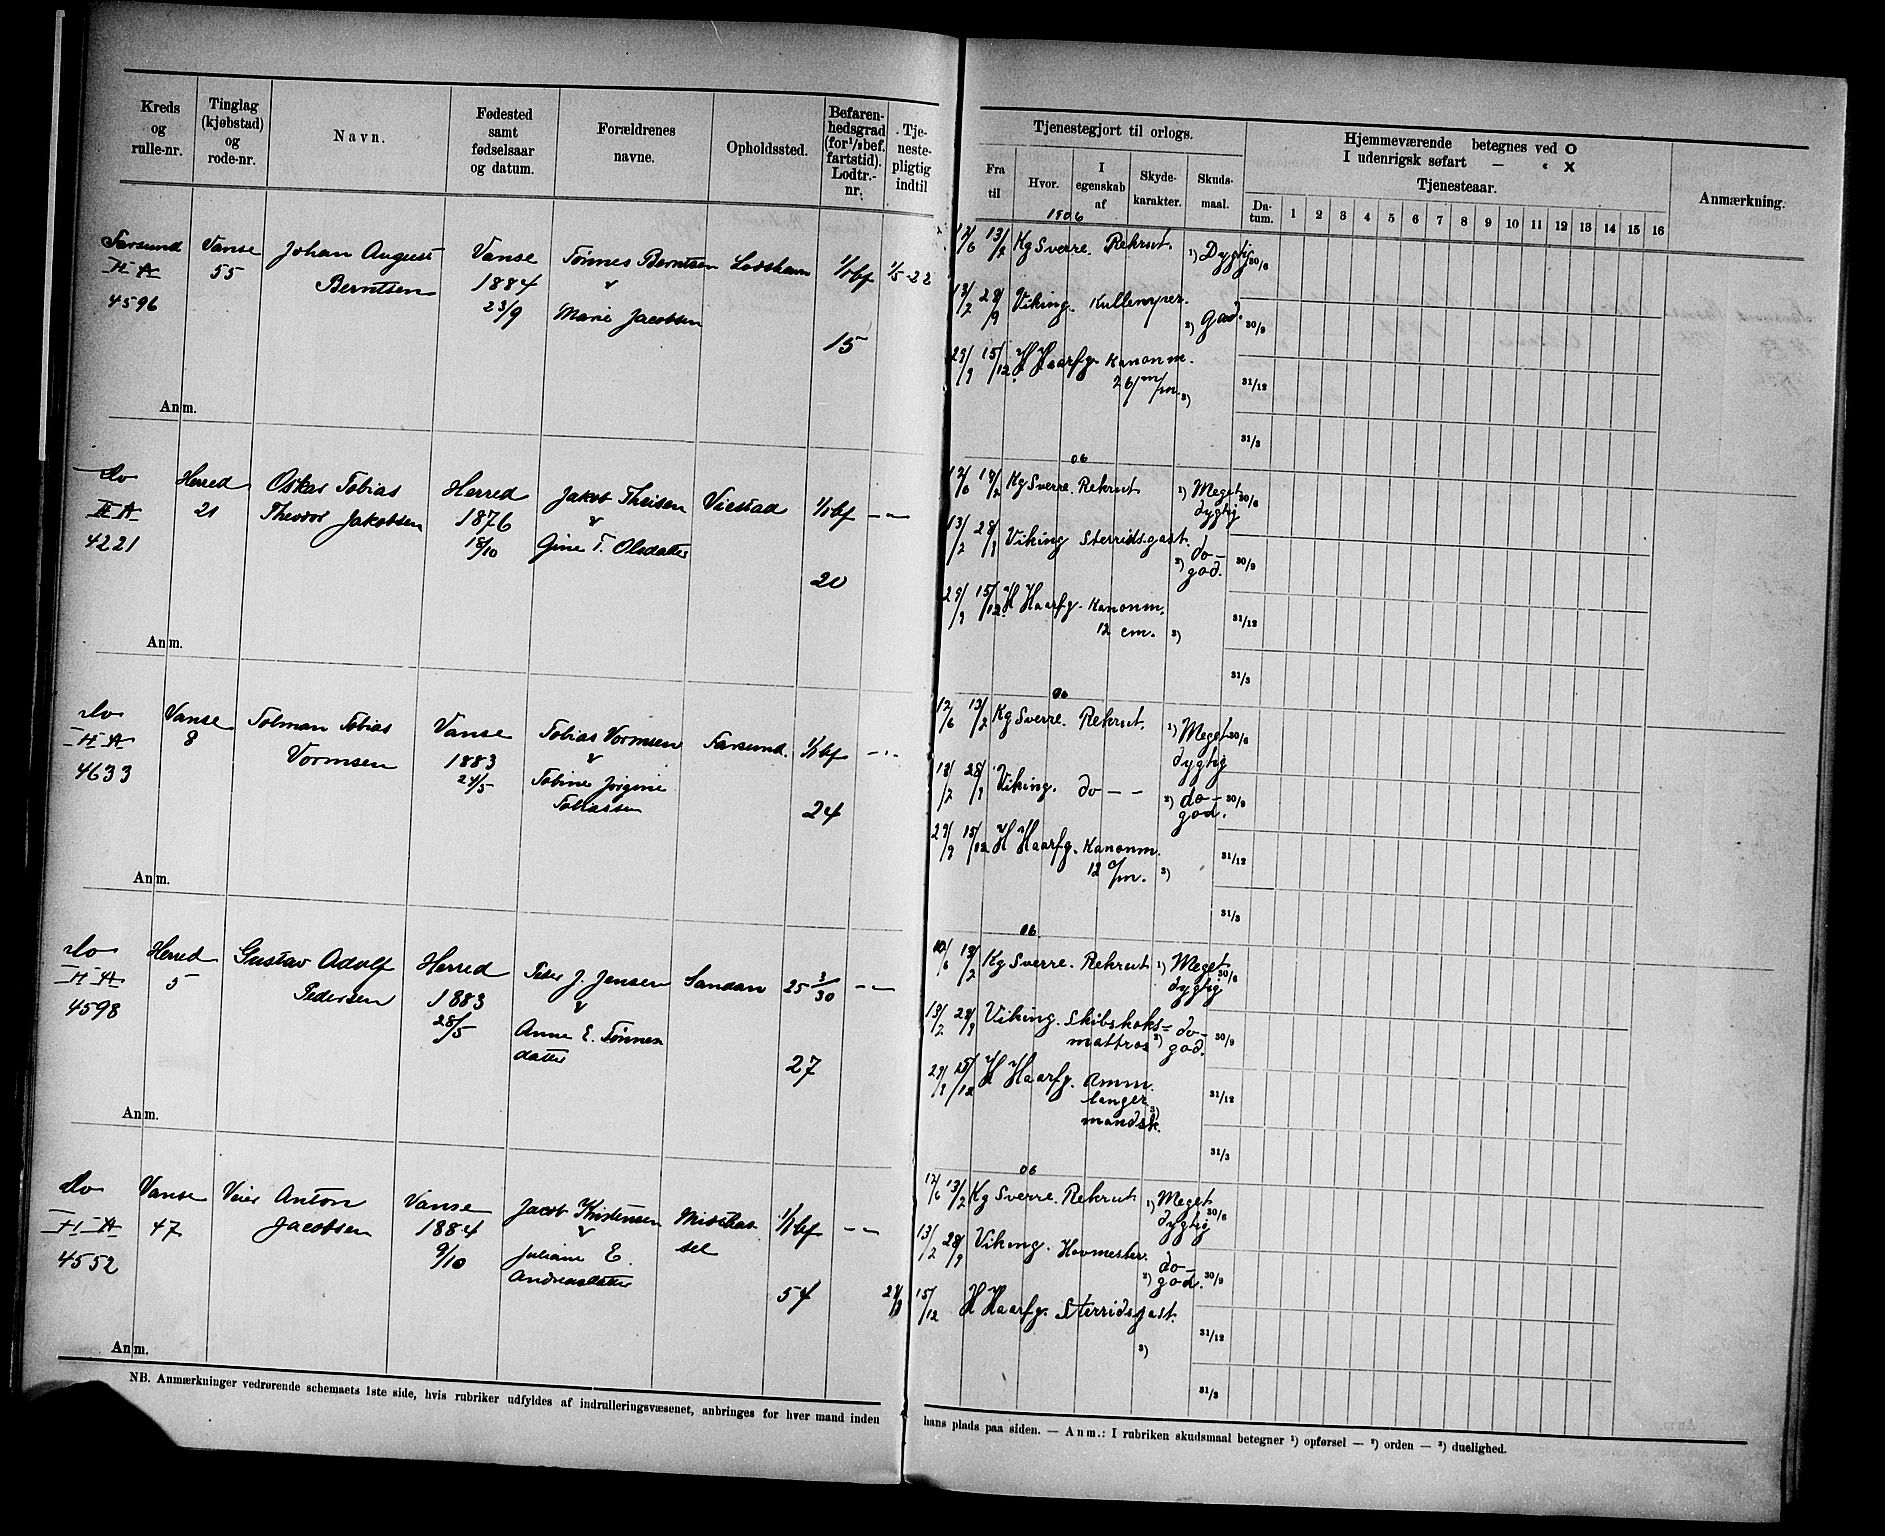 Kreds og rulle-nr.
Tinglag (kjøbstad) og rode-nr.
Navn.
Fødested samt fødselsaar og datum.
Forældrenes navne.
Opholdssted.
Befarenhedsgrad (for 1/1 bef. fartstid). Lodtr.-nr.
Tjenestepligtig indtil
Tjenestegjort til orlogs.
Fra til
Hvor.
I egenskab af
Skydekarakter.
Skudsmaal.
Hjemmeværende betegnes ved O
I udenrigsk søfart — « X
Tjenesteaar.
Datum. 1 2 3 4 5 6 7 8 9 10 11 12 13 14 15 16
Anmærkning.
Farsund
II A
4596
Vanse
55
Johan August
Berntsen
Vanse
1884
23/9
Tønnes Berntsen
&
Marie Jacobsen
1/1 bf
15
1/5-22
1906
12/6 13/7 Kg Sverre. Rekrut. 1) Dygtig 30/6
13/7 28/9 Viking. Kullemper. 2) God. 30/9
29/9 15/12 H Haarfg. Kanonm. 31/12
26 m/m. 3)
31/3
Anm.
do
II A
4221
Herred
21
Oskar Tobias
Theodor Jakobsen
Herred
1876
18/10
Jakob Theisen
&
Gine T. Olsdatter
Viestad
1/1 bf
20
— " —
06
12/6 13/7 Kg Sverre. Rekrut 1) Meget 30/6
dygtig
13/7 28/9 Viking Sterridsgast. 2) do— 30/9
god.
29/9 15/12 H Haarfg. Kanonm. 31/12
12 cm. 3)
31/3
Anm.
do
II A
4633
Vanse
8
Tolman Tobias
Vormsen
Vanse
1883
24/5
Tobias Vormsen
&
Tobine Jørgine
Tobiassen
Farsund.
1/1 bf
24
— " —
06
12/6 13/7 Kg Sverre. Rekrut. 1) Meget 30/6
dygtig
13/7 28/9 Viking. do — — 2) do— 30/9
god.
29/9 15/12 H Haarfg. Kanonm. 31/12
12 c/m. 3)
31/3
Anm.
do
II A
4598
Herred
5
Gustav Adolf
Pedersen
Herred
1883
28/5
Peter J. Jensen
&
Anne E. Tønnes
datter
Sandan
25 3/30
27
— " —
06
10/6 13/7 Kg Sverre. Rekrut 1) Meget 30/6
dygtig
13/7 28/9 Viking. Skibskoks= 2) do— 30/9
mattros god.
29/9 15/12 H Haarfg. Amm. 31/12
langer 3)
mandsk.
31/3
Anm.
do
II A
4552
Vanse
47
Anton
Jacobsen
Vanse
1884
9/10
Jacob Kristensen
&
Juliane E.
Andreasdatter
1/1 bf
54
— " —
06
12/6 13/7 Kg Sverre. Rekrut 1) Meget 30/6
dygtig
13/7 28/9 Viking. Hovmester. do—
2) god. 30/9
29/9 15/12 H Haarfg. Sterridsgast. 31/12
3)
31/3
Anm.
NB. Anmærkninger vedrørende schemaets 1ste side, hvis rubriker udfyldes af indrulleringsvæsenet, anbringes for hver mand inden
hans plads paa siden. — Anm.: I rubriken skudsmaal betegner 1) opførsel — 2) orden — 3) duelighed.